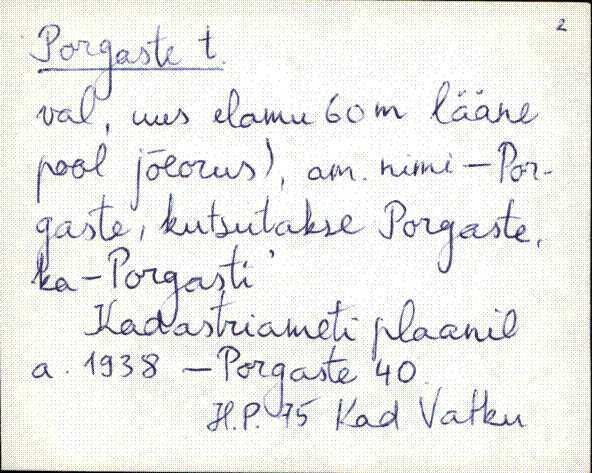 2
Porgaste t.
val, uus elamu 60 m lääne
pool jõeorus), am. nimi – Por-
gaste, kutsutakse Porgaste,
ka – Porgasti'
Kadastriameti plaanil
a. 1938 – Porgaste 40.
H.P. 75 Kad Vatku